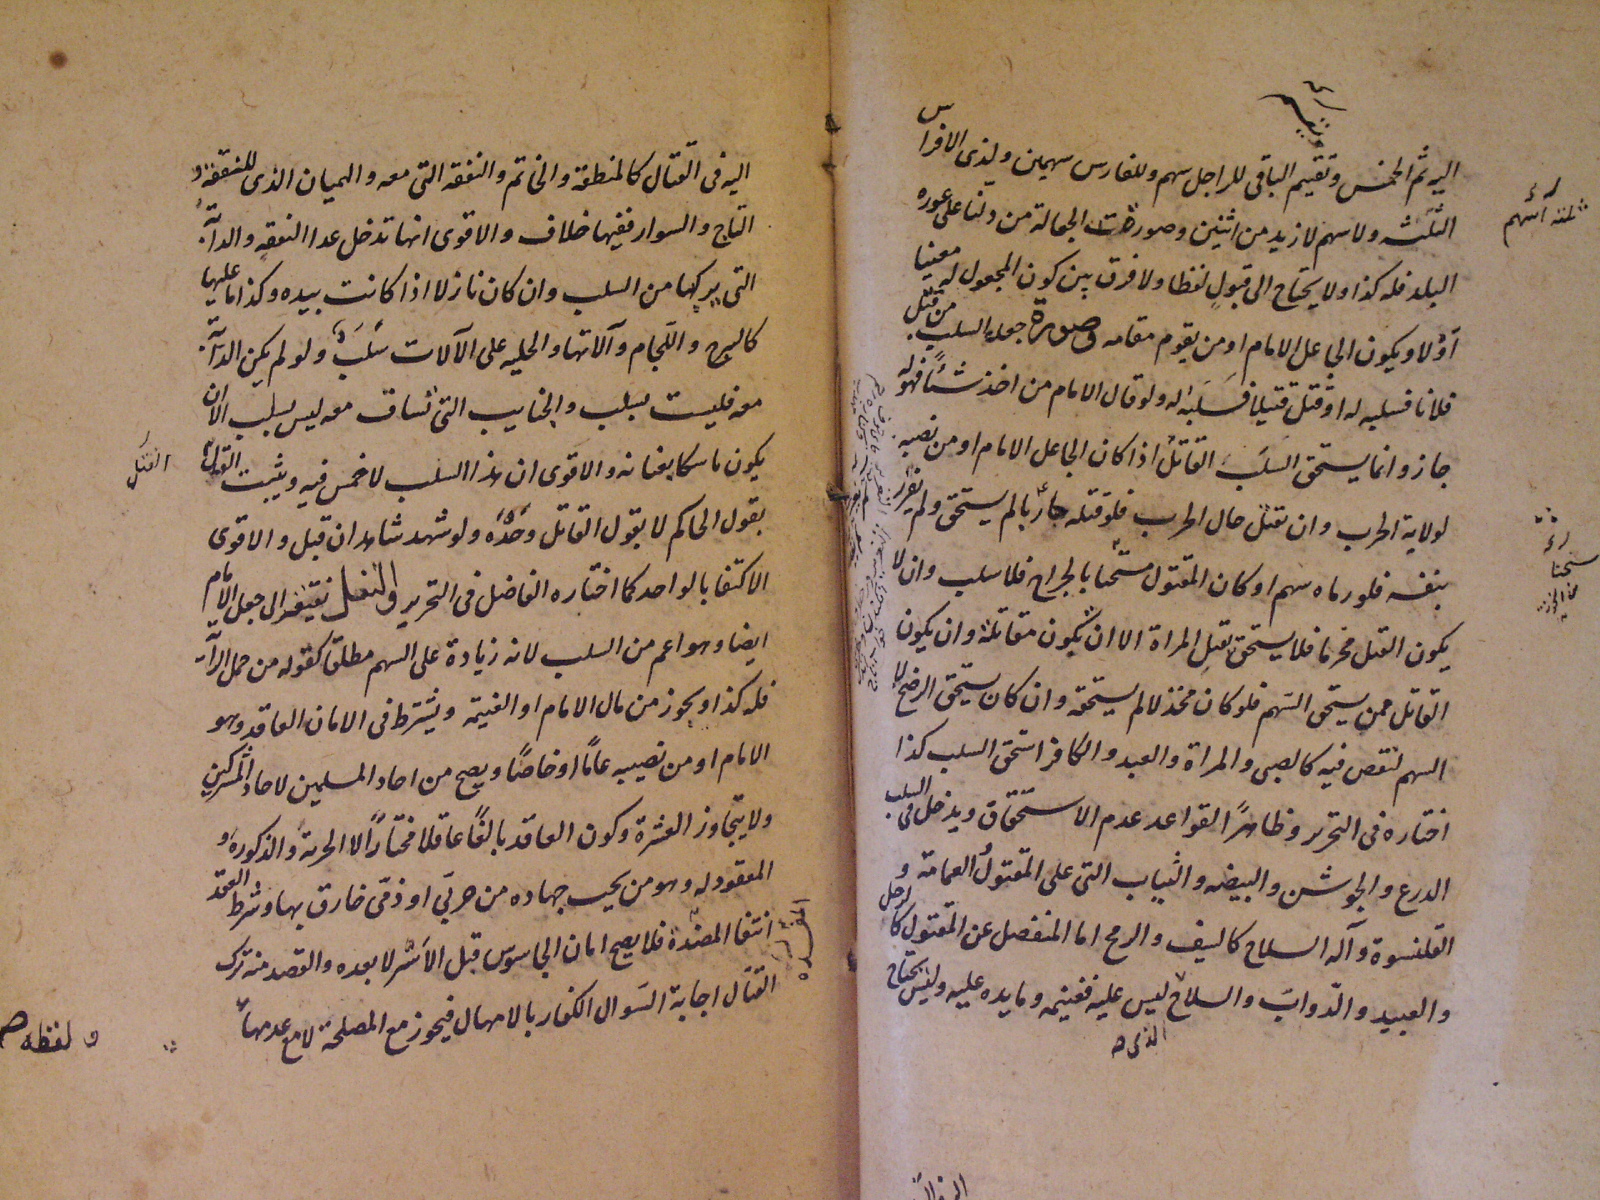 اليه ثم الخمس وتقيم الباقى للراجل سهم وللفارس سهمين ولذى الافراس
الثلثه ولا سهم لازيد من اثنين وصورة الجعالة من دلنا على عوره
البلد فله كذا ولا يحتاج الى قبول لفظا ولا فرق بين كون المجعول له معينا
اولا ويكون الجاعل الامام او من يقوم مقامه وصورة جعله السلب من قتل
فلانا فسلبه له او قتل قتيلا فسلبه له ولو قال الامام من اخذ شئا فهو له
جاز وانما يستحق السلب القاتل اذا كان الجاعل الامام او من نصبه
لولاية الحرب وان تقتل حال الحرب فلو قتله بالم يستحق ولم يغرر
بنفسه فلو رماه سهم او كان المقتول مثخنا بالجراح فلا سلب وان لا
يكون القتل محرما فلا يستحق بقتل المراة الا ان تكون مقاتلة وان يكون
القاتل ممن يستحق السهم فلو كان مخذلا لم يستحقه وان كان يستحق الرضخ لا
السهم لنقص فيه كالصبى والمراة والعبد والكافر استحق السلب كذا
اختاره فى التحرير وظاهر القواعد عدم الاستحقاق ويدخل فى السلب
الدرع والجوشن والبيضه والثياب التى على المقتول العمامة و
القلنسوة وآله السلاح كالسيف والرمح اما المنفصل عن المقتول كالرحل
والعبيد والدواب والسلاح ليس عليه فغنيمه وما يده عليه وليس يحتاج
الذى
ثلثه اسهم
اليه فى القتال كالمنطقة والخاتم والنفقه التى معه والهميان الذى للنفقة و
التاج والسوار ففيها خلاف والاقوى انها تدخل عدا النفقه والدابة
التى يركبها من السلب وان كان نازلا اذا كانت بيده وكذا ما عليها
كالسرج واللجام وآلاتها والحليه على الآلات سلب ولو لم يكن الدابة
معه فليست بسلب والجنايب التى تساق معه ليس بسلب الا ان
يكون ماسكا بعنانه والاقوى ان هذا السلب لا خمس فيه ويثبت القتل
بقول الحاكم لا بقول القاتل وحده ولو شهد شاهدان قبل والاقوى
الاكتفا بالواحد كما اختاره الفاضل فى التحرير والنفل يفتقر الى جعل الامام
ايضا وهو اعم من السلب لانه زيادة على السهم مطلقا كقوله من حمل الراية
فله كذا ويجوز من مال الامام او الغنيمه ويشترط فى الامان العاقد وهو
الامام او من نصبه عاما او خاصا ويصح من احاد المسلمين لاحاد المشركين
ولا يتجاوز العشرة وكون العاقد بالغا عاقلا مختارا لا الحرية والذكوره و
المعقود له وهو من يجب جهاده من حربى او ذمى خارق بها وشرط العقد
انتفا المفسدة فلا يصح امان الجاسوس قبل الاسر لا بعده والقصد منه ترك
القتال اجابة السوال الكفار بالامهال فيجوز مع المصلحة لا مع عدمها
القتل
المفسده
ولفظه